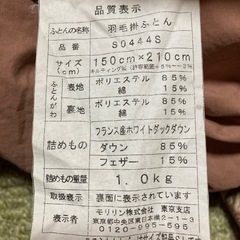 品質表示
ふとんの名称 羽毛掛ふとん
品番 S0444S
サイズ(cm) 150cm×210cm
キルティング後 (許容範囲+5%~-2%)
ふとんがわ 表地 ポリエステル 85%
綿 15%
裏地 ポリエステル 85%
綿 15%
詰めもの フランス産ホワイトダックダウン
ダウン 85%
フェザー 15%
詰めもの重量 1.0kg
取扱表示 裏面に表示されています
表示者 モリリン株式会社 東京支店
東京都中央区
0120-995-595